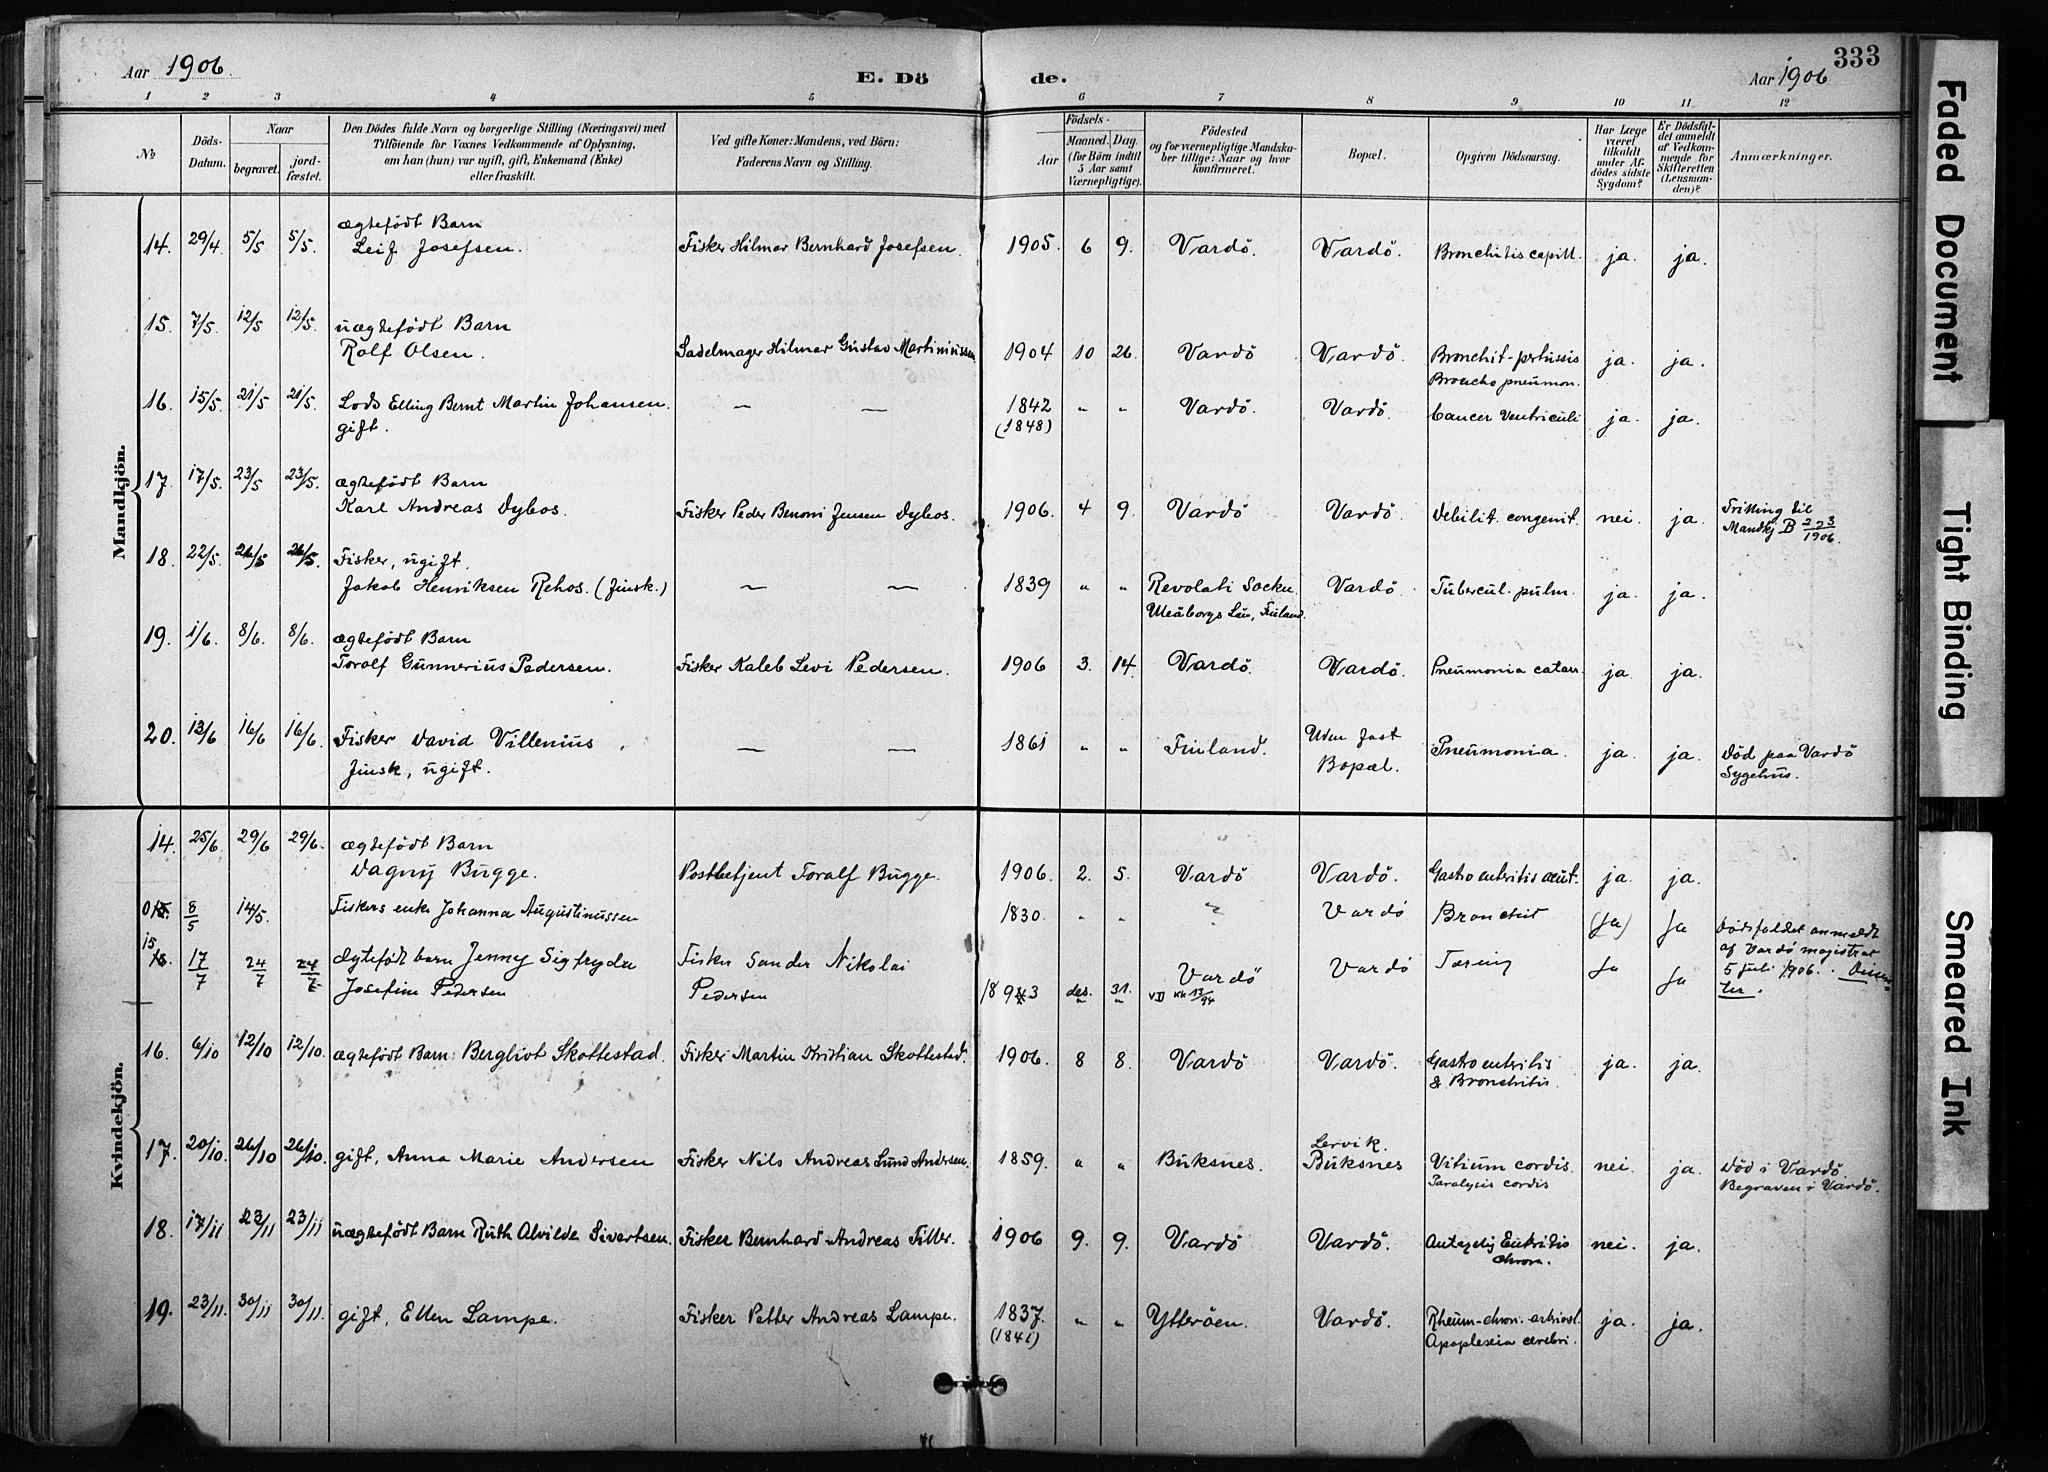 Aar 1906.
E. Döde.
Aar 1906
333
1 2 3 3 4 5 6 7 8 9 10 11 12
№
Döds-Datum.
Naar
begravet.
jordfæstet.
Den Dödes fulde Navn og borgerlige Stilling (Næringsvei) med
Tilföiende for Voxnes Vedkommende af Oplysning,
om han (hun) var ugift, gift, Enkemand (Enke)
eller fraskilt.
Ved gifte Koner: Mandens, ved Börn:
Faderens Navn og Stilling.
Födsels-
Aar
Maaned. Dag.
(for Börn indtil
5 Aar samt
Værnepligtige).
Födested
og for værnepligtige Mandskaber tillige: Naar og hvor
konfirmeret.
Bopæl.
Opgiven Dödsaarsag.
Har Læge
været
tilkaldt
under Afdödes sidste
Sygdom?
Er Dödsfaldet anmeldt
af Vedkommende for
Skifteretten
(Lensmanden)?
Anmærkninger.
Mandkjön.
14. 29/4 5/5 5/5. ægtefödt Barn
Leif Josefsen. Fisker Hilmar Bernhard Josefsen. 1905. 6 9. Vardö. Vardö. Bronchitis capill. ja. ja.
15. 7/5. 12/5 12/5. uægtefödt Barn
Rolf Olsen. Sadelmager Hilmar Gustav Martiniussen 1904 10 26. Vardö Vardö. Bronchit-pertussis ja. ja.
Broncho pneumon.
16. 15/5. 21/5 21/5. Lods Elling Bernt Martin Johansen. — — 1842 " " Vardö. Vardö. Cancer Ventriculi ja. ja.
gift. (1848)
17. 17/5. 23/5 23/5. ægtefödt Barn
Karl Andreas Dybos. Fisker Peder Benoni Jensen Dybos. 1906. 4 9. Vardö Vardö. Debilit. congenit. nei. ja. Tvilling til
Mandkj B 223/1906.
18. 22/5. 26/5 26/5. Fisker, ugift.
Jakob Henriksen Rehos. (finsk.) — — 1839 " " Revolati Socku. Vardö. Tubercul. pulm. ja. ja.
Uleåborgs Län, Finland.
19. 1/6. 8/6. 8/6. ægtefödt Barn
Toralf Gunnerius Pedersen. Fisker Kaleb Levi Pedersen. 1906 3. 14. Vardö. Vardö. Pneumonia catarr. ja ja.
20. 13/6 16/6 16/6. Fisker David Villenius — — 1861 " " Finland. Uden fast
Bopæl. Pneumonia. ja. ja. Död paa Vardö
finsk, ugift. Sygehus.
Kvindekjön.
14. 25/6. 29/6 29/6. ægtefödt Barn
Dagny Bugge. Postbetjent Toralf Bugge. 1906. 2. 5. Vardö Vardö. Gastro enteritis acut. ja. ja.
8/5 14/5. Fiskers enke Johanna Augustinussen 1830. " " " Vardö Bronchit (Ja) Ja Dödsfaldet anmeldt
af Vardö magistrat
5 juli 1906.
15 17/7 24/7 24/7 Ægtefödt barn Jenny Sigfryda Fisker Sander Nikolai Vardö Vardö Tæring Ja Ja
Josefine Pedersen Pedersen 1893 des. 31. VII 13/94
16. 6/10 12/10 12/10. ægtefödt Barn: Bergliot Skottestad. Fisker Martin Kristian Skottestad. 1906. 8 8. Vardö Vardö. Gastro enteritis ja. ja.
& Bronchitis.
17. 20/10. 26/10 26/10. gift, Anna Marie Andersen Fisker Nils Andreas Lund Andersen. 1859. " " Buksnes. Lervik.
Buksnes Vitium cordis. nei. ja. Död i Vardö.
Paralysis cordis Begraven i Vardö.
18. 17/11 23/11 23/11 uægtefödt Barn Ruth Alvilde Sivertsen. Fisker Bernhard Andreas Tiller. 1906 9. 9. Vardö Vardö. Enteritis nei. ja.
chron.
19. 23/11. 30/11 30/11. gift, Ellen Lampe. Fisker Petter Andreas Lampe. 1837. " " Ytteröen. Vardö. Rheum-chron. ja. ja.
(1841) Apoplexia cerebri.
Faded Document
Tight Binding
Smeared Ink